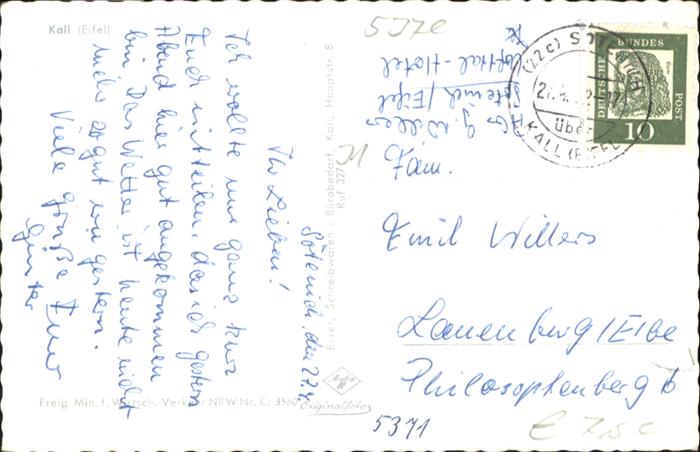 Kall (Eifel)
Sötenich, den 27.4.
Ihr Lieben!
Ich wollte nur ganz kurz
Euch mitteilen, dass ich gestern
Abend hier gut angekommen
bin. Das Wetter ist heute nicht
mehr so gut wie gestern.
Viele Grüße Euer
Günter
Freig. Min. f. Wirtsch.-Verkehr NRW Nr. Cr 3560
Originalfoto
Esser, Schreibwaren - Bürobedarf, Kall, Hauptstr. 8
Ruf 327
537e
G. Willers
Sötenich/Eifel
-Hotel
(22c) SÖTENICH
über
KALL (EIFEL)
DEUTSCHE BUNDESPOST
10
Fam.
Emil Willers
Lauenburg/Elbe
Philosophenberg 6
5371